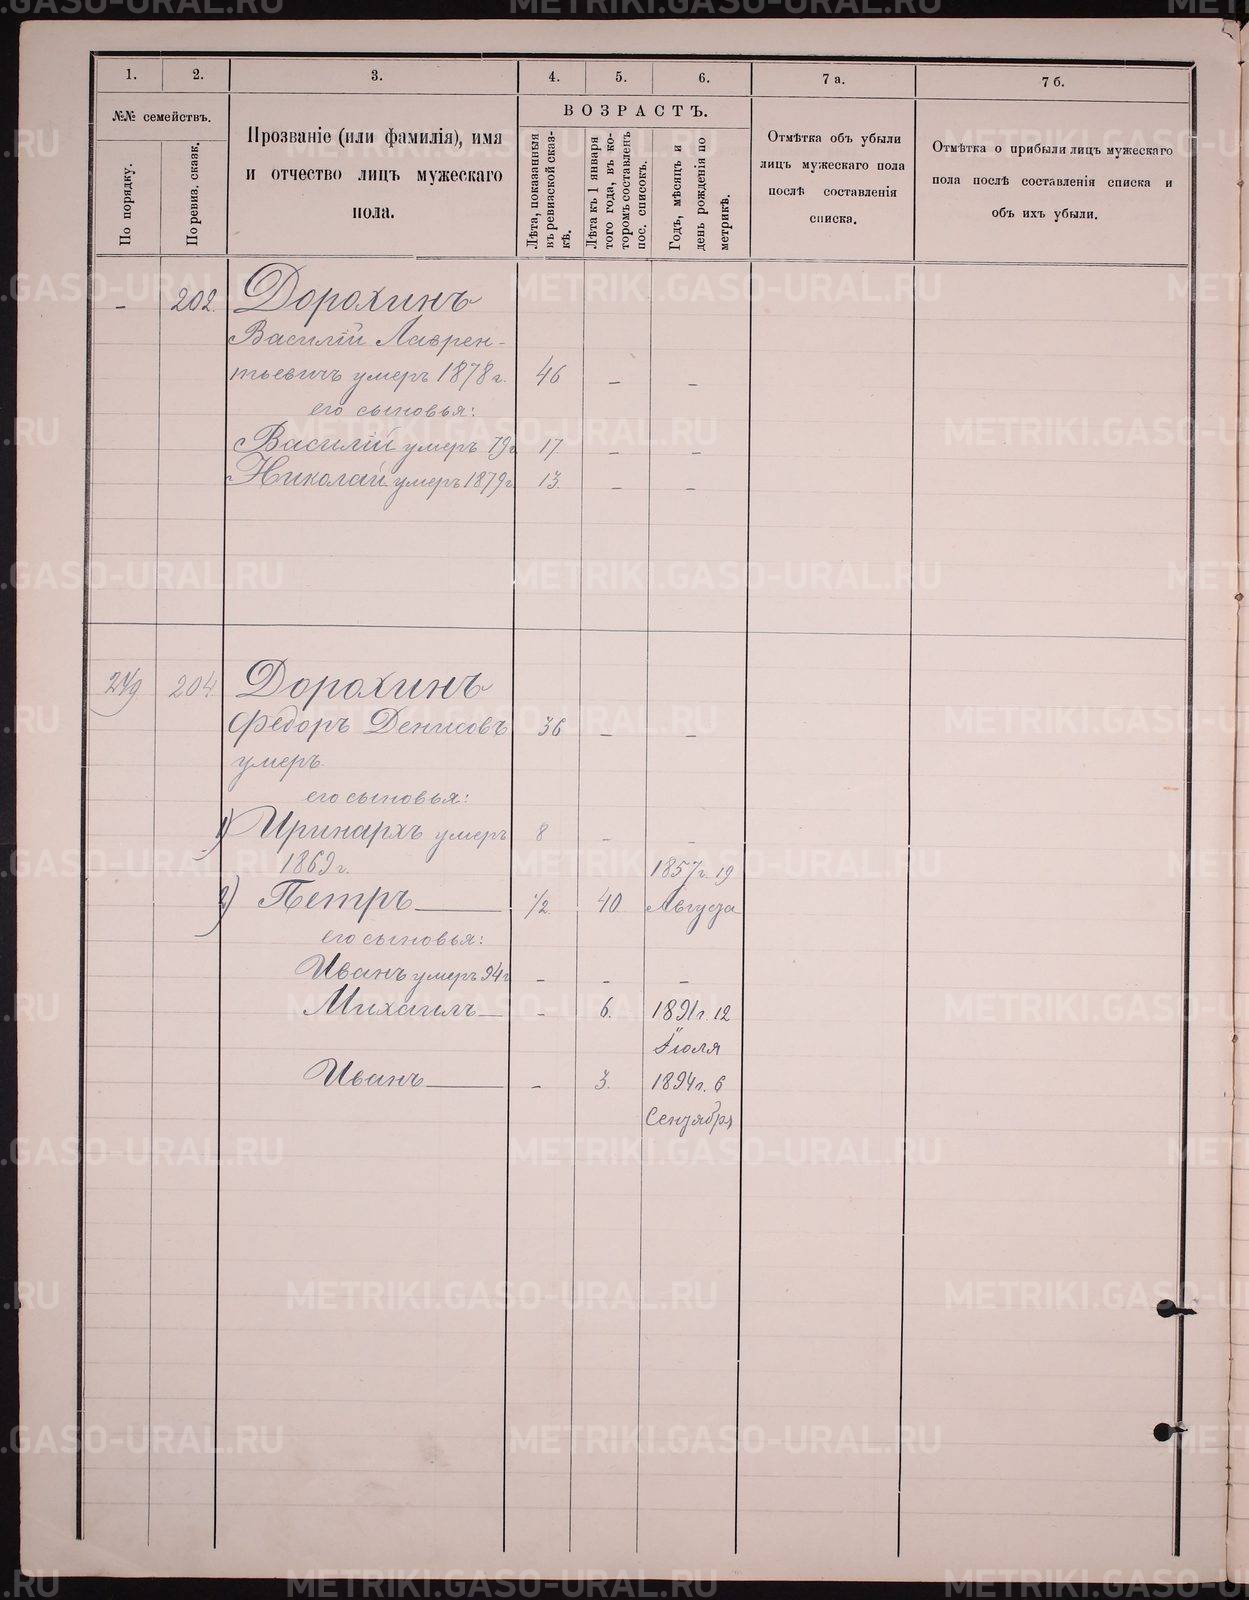 1. 2. 3. 4. 5. 6. 7 а. 7 б.
№№ семействъ.
По порядку.
По ревиз. сказк.
Прозваніе (или фамилія), имя
и отчество лицъ мужескаго
пола.
ВОЗРАСТЪ.
Лѣта, показанныя
въ ревизской сказ-
кѣ.
Лѣта къ 1 января
того года, въ ко-
торомъ составленъ
пос. списокъ.
Годъ, мѣсяцъ и
день рожденія по
метрикѣ.
Отмѣтка объ убыли
лицъ мужескаго пола
послѣ составленія
списка.
Отмѣтка о прибыли лицъ мужескаго
пола послѣ составленія списка и
объ ихъ убыли.
– 202. Дорохинъ
Василій Лаврен-
тьевичъ умеръ 1878 г. 46 – –
его сыновья:
Василій умеръ 79 г 17 – –
Николай умеръ 1879 г. 13. – –
204. Дорохинъ
Федоръ Денисовъ 36 – –
умеръ.
его сыновья:
1) Иринархъ умеръ 8 – –
1869 г. 1857 г. 19
2) Петръ 1/2 40. Августа
его сыновья:
Иванъ умеръ 94 г – – –
Михаилъ – – 6. 1891 г. 12
Іюля
Иванъ – – 3. 1894 г. 6
Сентября
METRIKI.GASO-URAL.RU